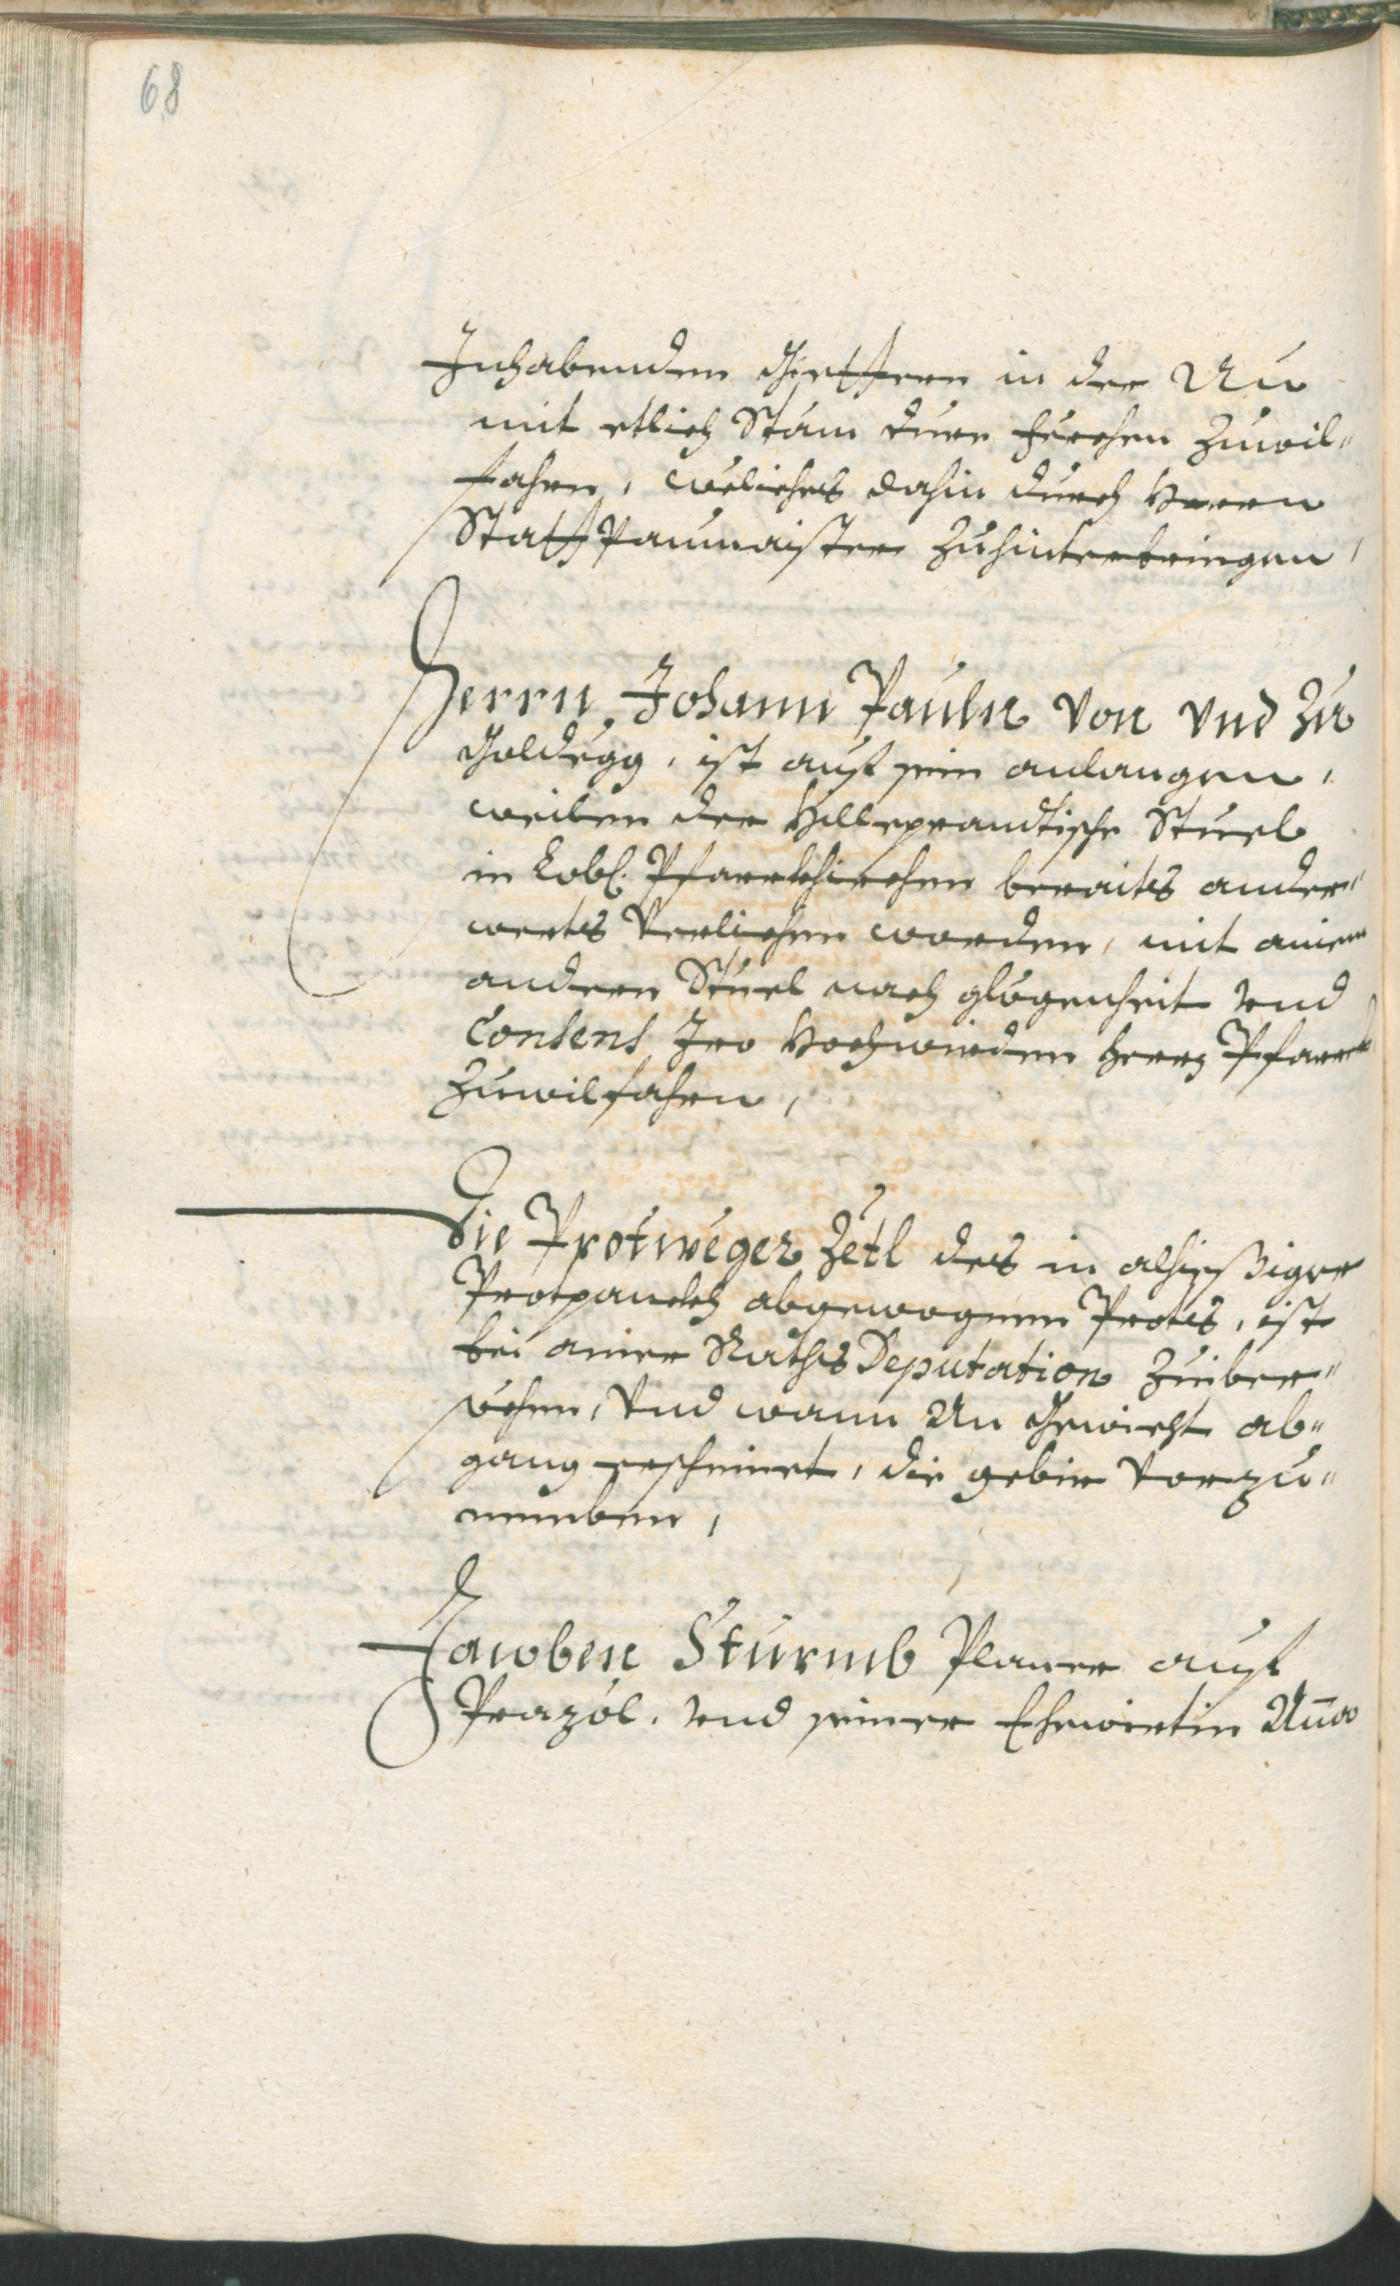 68
Inhabenden Güettern in der Au
mit etlich Stam dürr Ferchen zuwil„
fahren, weliches dahin durch Herrn
Statt Paumaister zuhinterbringen,
Herrn Johann Pauln von vnd zu
Goldegg, ist auf sein anlangen,
weilen der Hilleprandtische Stuel
in Lobl. Pfarrkhirchen beraits ander„
werts verlichen worden, mit ainem
andern Stuel nach glögenheit vnd
Consens Iro Hochwirden Herrn Pfarrer
zuwilfahren,
Die Protweger Zetl des in alhießiger
Protpanckh abgewognen Prots, ist
bei ainer Raths Deputation zuiber„
sehen, vnd wann An Gewicht ab„
gang erscheinet, die gebir vorzu„
nemben,
Jacoben Sturmb Planer auf
Prazöl, vnd seiner Ehewirtin Anna